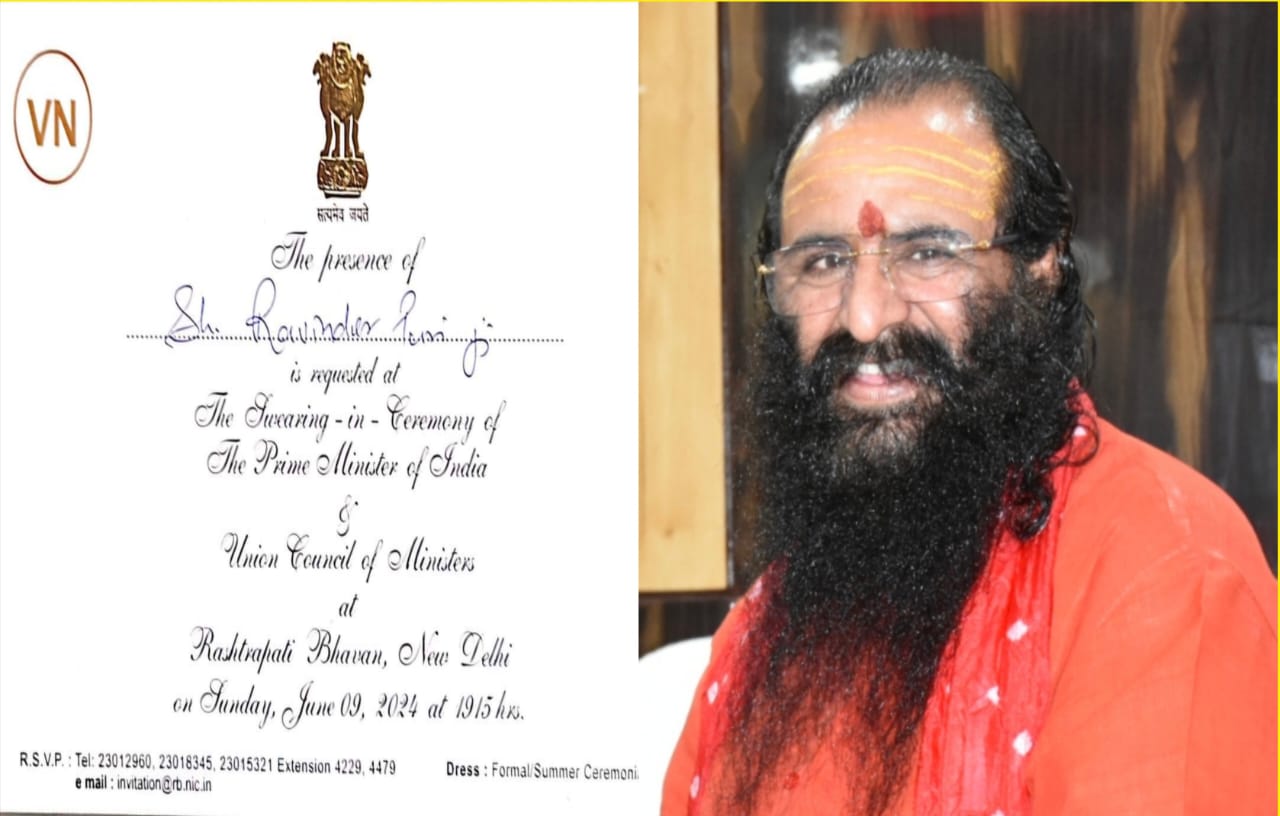 VN
सत्यमेव जयते
The presence of
Sh. Ravinder Puri ji
is requested at
The Swearing - in - Ceremony of
The Prime Minister of India
&
Union Council of Ministers
at
Rashtrapati Bhavan, New Delhi
on Sunday, June 09, 2024 at 1915 hrs.
R.S.V.P. : Tel: 23012960, 23018345, 23015321 Extension 4229, 4479
e mail : invitation@rb.nic.in
Dress : Formal/Summer Ceremoni